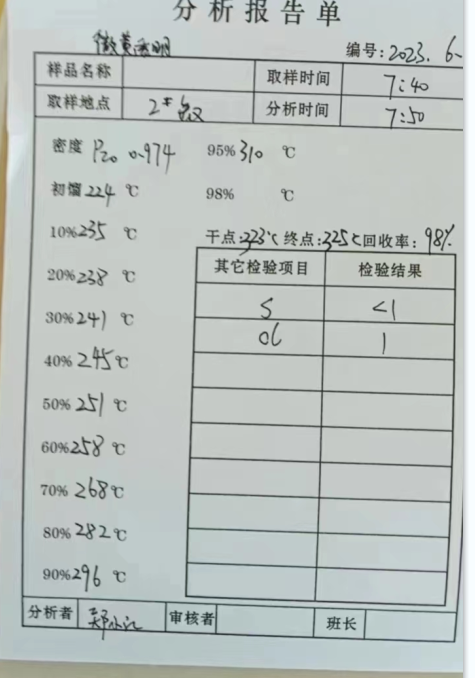 分析报告单
微黄透明
编号:2023.6-
样品名称 取样时间 7:40
取样地点 2# 分析时间 7:50
密度 P20 0.974 95% 310 ℃
初馏 224 ℃ 98% ℃
10% 235 ℃ 干点:323℃ 终点:325℃ 回收率:98%
20% 238 ℃ 其它检验项目 检验结果
30% 241 ℃ S <1
40% 245 ℃ 1
50% 251 ℃
60% 258 ℃
70% 268 ℃
80% 282 ℃
90% 296 ℃
分析者 审核者 班长